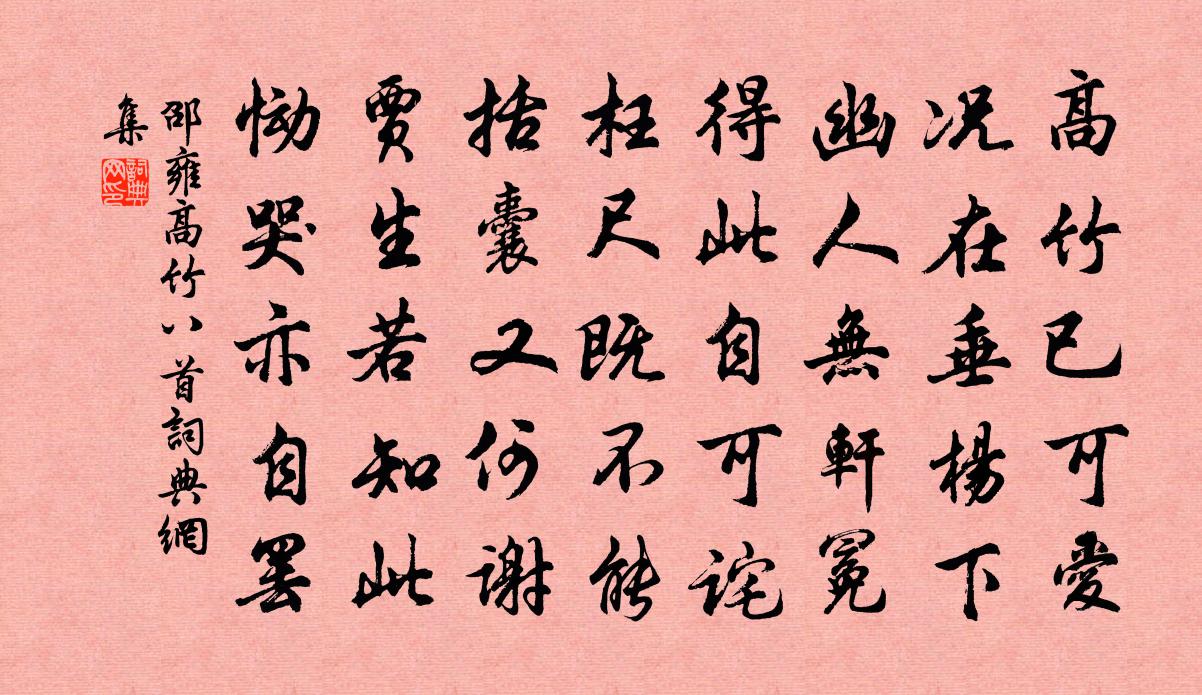 高竹已可愛
況在垂楊下
幽人無軒冕
得此自可詫
枉尺既不能
括囊又何謝
賈生若知此
慟哭亦自罷
邵雍高竹八首詞典網
集
詞典網印